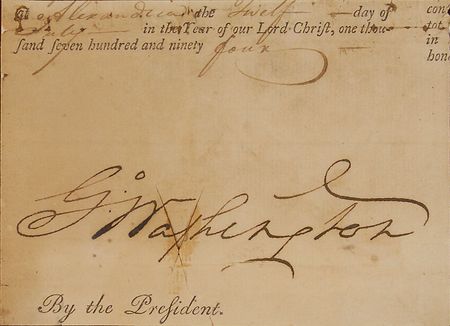 at Alexandria the Twelf day of con
July in the Year of our Lord Chriſt, one thou- tot
ſand ſeven hundred and ninety four in
hon
G:Washington
By the Preſident.